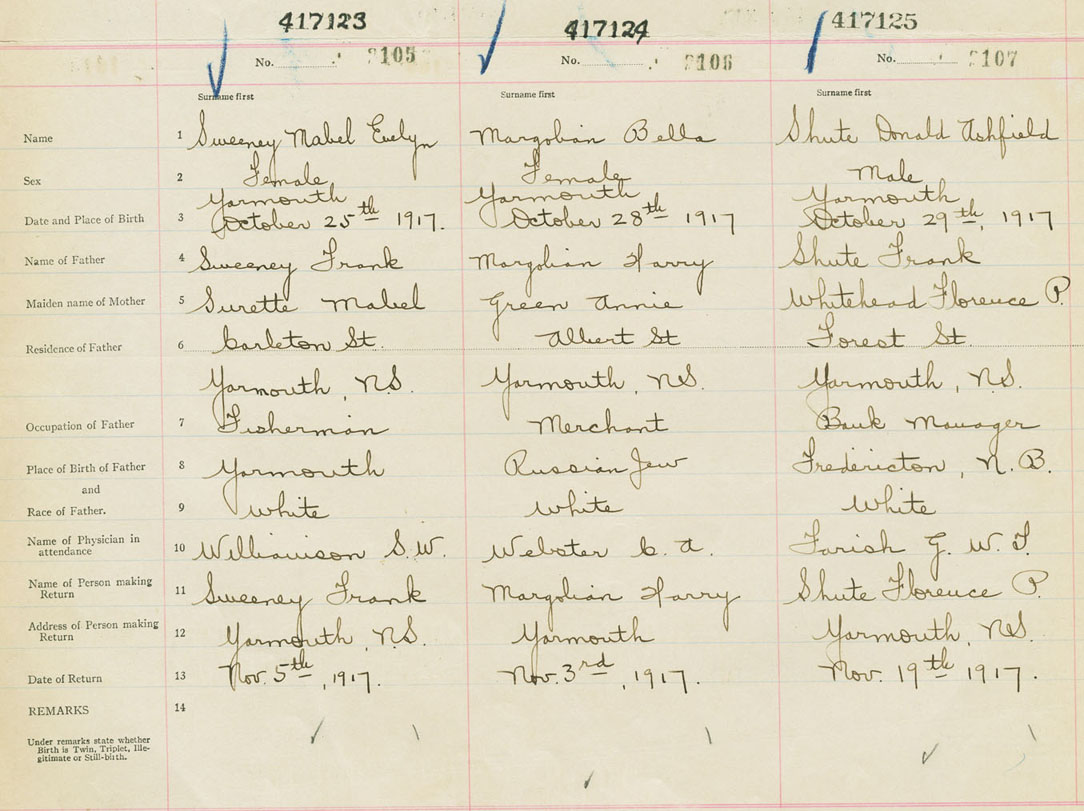 417123 417124 417125
No. 3105 No. 3106 No. 3107
Surname first Surname first Surname first
Name 1 Sweeney Mabel Evelyn Margolian Bella Shute Donald Ashfield
Sex 2 Female Female Male
Yarmouth Yarmouth Yarmouth
Date and Place of Birth 3 October 25th 1917. October 28th 1917 October 29th, 1917
Name of Father 4 Sweeney Frank Margolian Harry Shute Frank
Maiden name of Mother 5 Surette Mabel Green Annie Whitehead Florence P.
Residence of Father 6 Carleton St. Albert St Forest St.
Yarmouth, N.S. Yarmouth, N.S. Yarmouth, N.S.
Occupation of Father 7 Fisherman Merchant Bank Manager
Place of Birth of Father 8 Yarmouth Russian Jew Fredericton, N.B.
and
Race of Father. 9 White White White
Name of Physician in
attendance 10 Williamson S.W. Webster C. A. Farish G. W. T.
Name of Person making
Return 11 Sweeney Frank Margolian Harry Shute Florence P.
Address of Person making
Return 12 Yarmouth, N.S. Yarmouth Yarmouth, N.S.
Date of Return 13 Nov. 5th, 1917. Nov. 3rd, 1917. Nov. 19th 1917.
REMARKS 14
Under remarks state whether
Birth is Twin, Triplet, Ille-
gitimate or Still-birth.